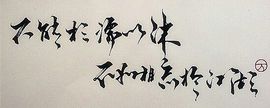 不能相濡以沫
不如相忘於江湖